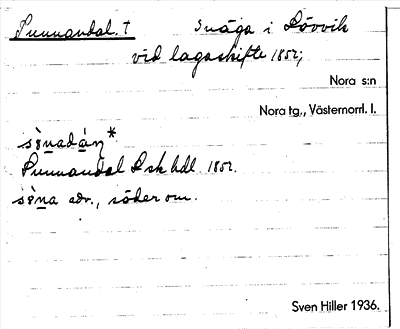 Sunnandal. † Snäga i Rövvik
vid lagaskifte 1852;
Nora s:n
Nora tg., Västernorrl. l.
Sunnandal Lsk hdl. 1852.
adv., söder om.
Sven Hiller 1936.